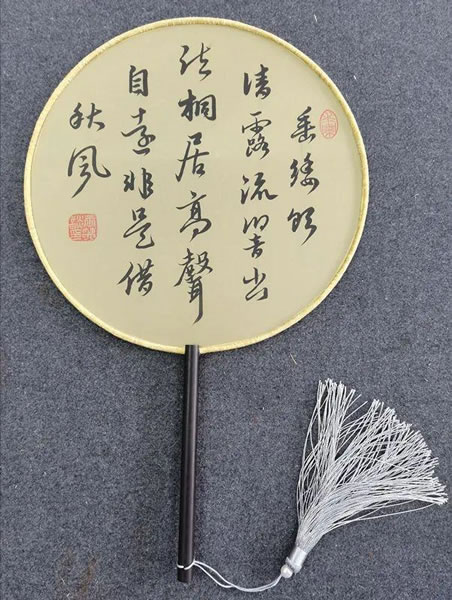 垂緌飲
清露流響出
疏桐居高聲
自遠非是借
秋風